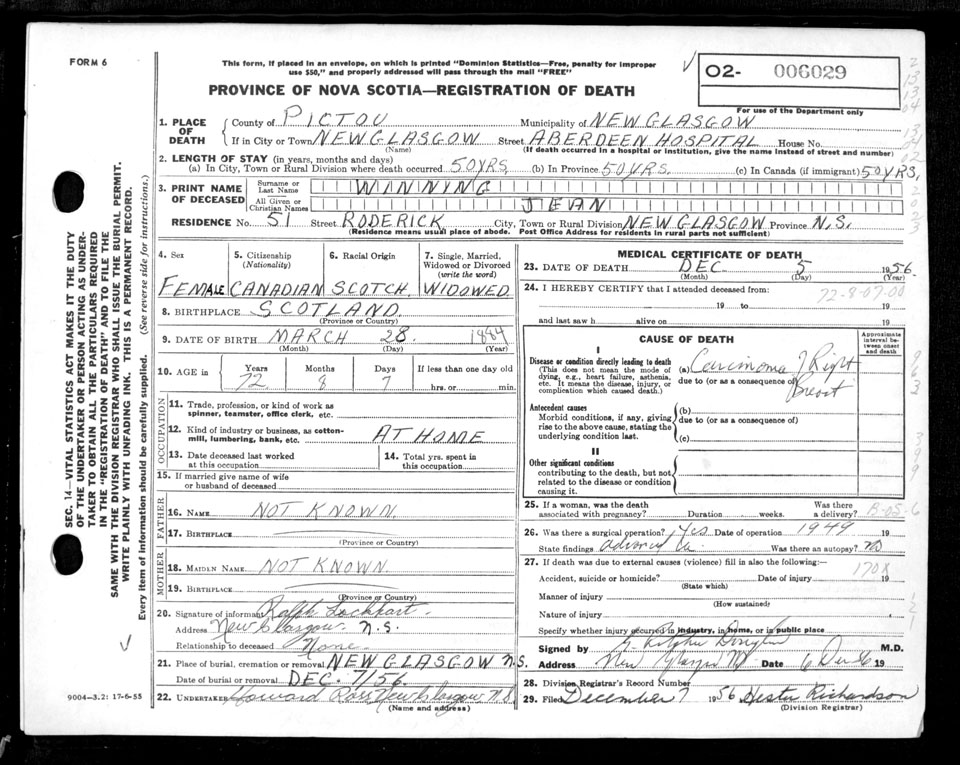 FORM 6
This form, if placed in an envelope, on which is printed "Dominion Statistics—Free, penalty for improper
use $50," and properly addressed will pass through the mail "FREE"
O2- 006029
For use of the Department only
PROVINCE OF NOVA SCOTIA—REGISTRATION OF DEATH
1. PLACE OF DEATH County of PICTOU Municipality of NEW GLASGOW
If in City or Town NEW GLASGOW Street ABERDEEN HOSPITAL House No.
(Name) (If death occurred in a hospital or institution, give the name instead of street and number)
2. LENGTH OF STAY (in years, months and days)
(a) In City, Town or Rural Division where death occurred 50 YRS, (b) In Province 50 YRS. (c) In Canada (if immigrant) 50 YRS,
3. PRINT NAME OF DECEASED Surname or Last Name WINNING
All Given or Christian Names JEAN
RESIDENCE No. 51 Street RODERICK City, Town or Rural Division NEW GLASGOW Province N.S.
(Residence means usual place of abode. Post Office Address for residents in rural parts not sufficient)
SEC. 14—VITAL STATISTICS ACT MAKES IT THE DUTY
OF THE UNDERTAKER OR PERSON ACTING AS UNDER-
TAKER TO OBTAIN ALL THE PARTICULARS REQUIRED
IN THE "REGISTRATION OF DEATH" AND TO FILE THE
SAME WITH THE DIVISION REGISTRAR WHO SHALL ISSUE THE BURIAL PERMIT.
WRITE PLAINLY WITH UNFADING INK. THIS IS A PERMANENT RECORD.
Every item of information should be carefully supplied. (See reverse side for instructions.)
4. Sex FEMALE
5. Citizenship (Nationality) CANADIAN
6. Racial Origin SCOTCH
7. Single, Married, Widowed or Divorced (write the word) WIDOWED
8. BIRTHPLACE SCOTLAND
(Province or Country)
9. DATE OF BIRTH MARCH 28. 1884
(Month) (Day) (Year)
10. AGE IN Years Months Days If less than one day old
72 8 7 hrs. or min.
OCCUPATION
11. Trade, profession, or kind of work as
spinner, teamster, office clerk, etc.
12. Kind of industry or business, as cotton-
mill, lumbering, bank, etc. AT HOME
13. Date deceased last worked
at this occupation
14. Total yrs. spent in
this occupation
15. If married give name of wife
or husband of deceased
FATHER
16. NAME NOT KNOWN
17. BIRTHPLACE
(Province or Country)
MOTHER
18. MAIDEN NAME NOT KNOWN
19. BIRTHPLACE
(Province or Country)
20. Signature of informant Ralph Lockhart
Address New Glasgow N.S.
Relationship to deceased None
21. Place of burial, cremation or removal NEW GLASGOW N.S.
Date of burial or removal DEC. 7/56
22. Undertaker Howard Ross New Glasgow N.S.
(Name and address)
9004-3.2: 17-6-55
MEDICAL CERTIFICATE OF DEATH
23. DATE OF DEATH DEC 5 1956.
(Month) (Day) (Year)
24. I HEREBY CERTIFY that I attended deceased from:
72-8-07-00
19 to 19
and last saw h alive on 19
CAUSE OF DEATH
Approximate interval between onset and death
I
Disease or condition directly leading to death
(This does not mean the mode of
dying, e.g., heart failure, asthenia,
etc. It means the disease, injury, or
complication which caused death.)
(a) Carcinoma of Right
due to (or as a consequence of) Breast
Antecedent causes
Morbid conditions, if any, giving
rise to the above cause, stating the
underlying condition last.
(b)
due to (or as a consequence of)
(c)
II
Other significant conditions
contributing to the death, but not
related to the disease or condition
causing it.
25. If a woman, was the death
associated with pregnancy? Duration weeks. Was there
a delivery?
26. Was there a surgical operation? Yes Date of operation 1949 19
State findings advanced Ca. Was there an autopsy? No
27. If death was due to external causes (violence) fill in also the following:—
170X
Accident, suicide or homicide? Date of injury 19
(State which)
Manner of injury
(How sustained)
Nature of injury
Specify whether injury occurred in industry, in home, or in public place
Signed by M.D.
Address New Glasgow Date 6 Dec 56 19
28. Division Registrar's Record Number
29. Filed December 7 1956 Hester Richardson
(Division Registrar)